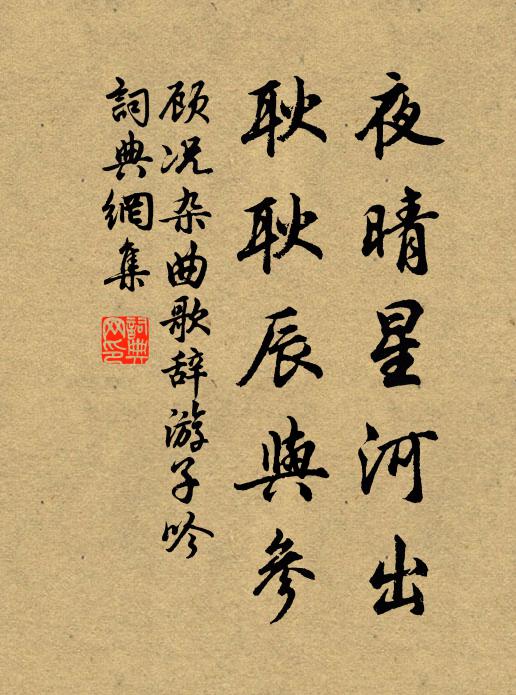 夜晴星河出
耿耿辰與參
顾况杂曲歌辞游子吟
詞典網集
詞典
网印